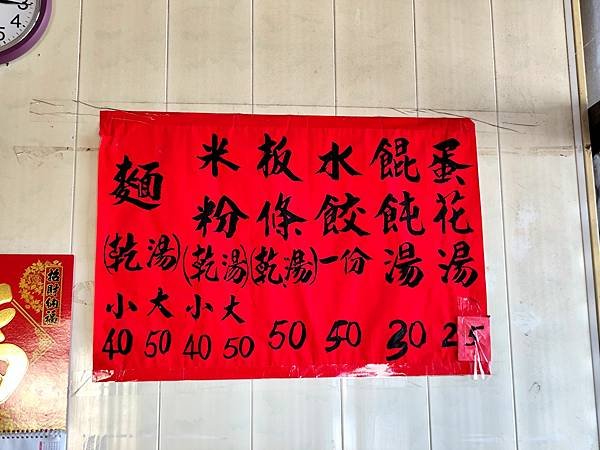 蛋花湯 25
餛飩湯 30
水餃 一份 50
板條 (乾湯) 50
米粉 (乾湯) 大 50 小 40
麵 (乾湯) 大 50 小 40
招財納福
3
4
5